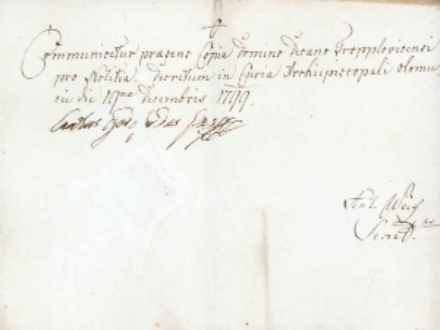 Communicetur præsens Copia Domino Decano Tropploviensi
pro Notitia. Decretum in Curia Archiepiscopali Olomu
cii die 19na Decembris 1799.
Ant. Weis
Secret